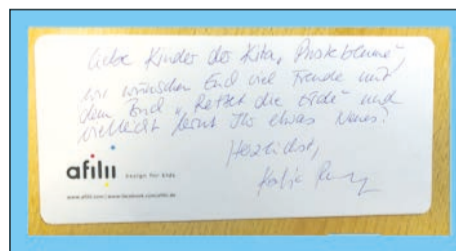 Liebe Kinder der Kita „Pusteblume“,
wir wünschen Euch viel Freude mit
dem Buch „Rettet die Erde“ und
vielleicht lernt Ihr etwas Neues?
Herzlichst,
afilii
design for kids
www.afilii.com | www.facebook.com/afilii.de